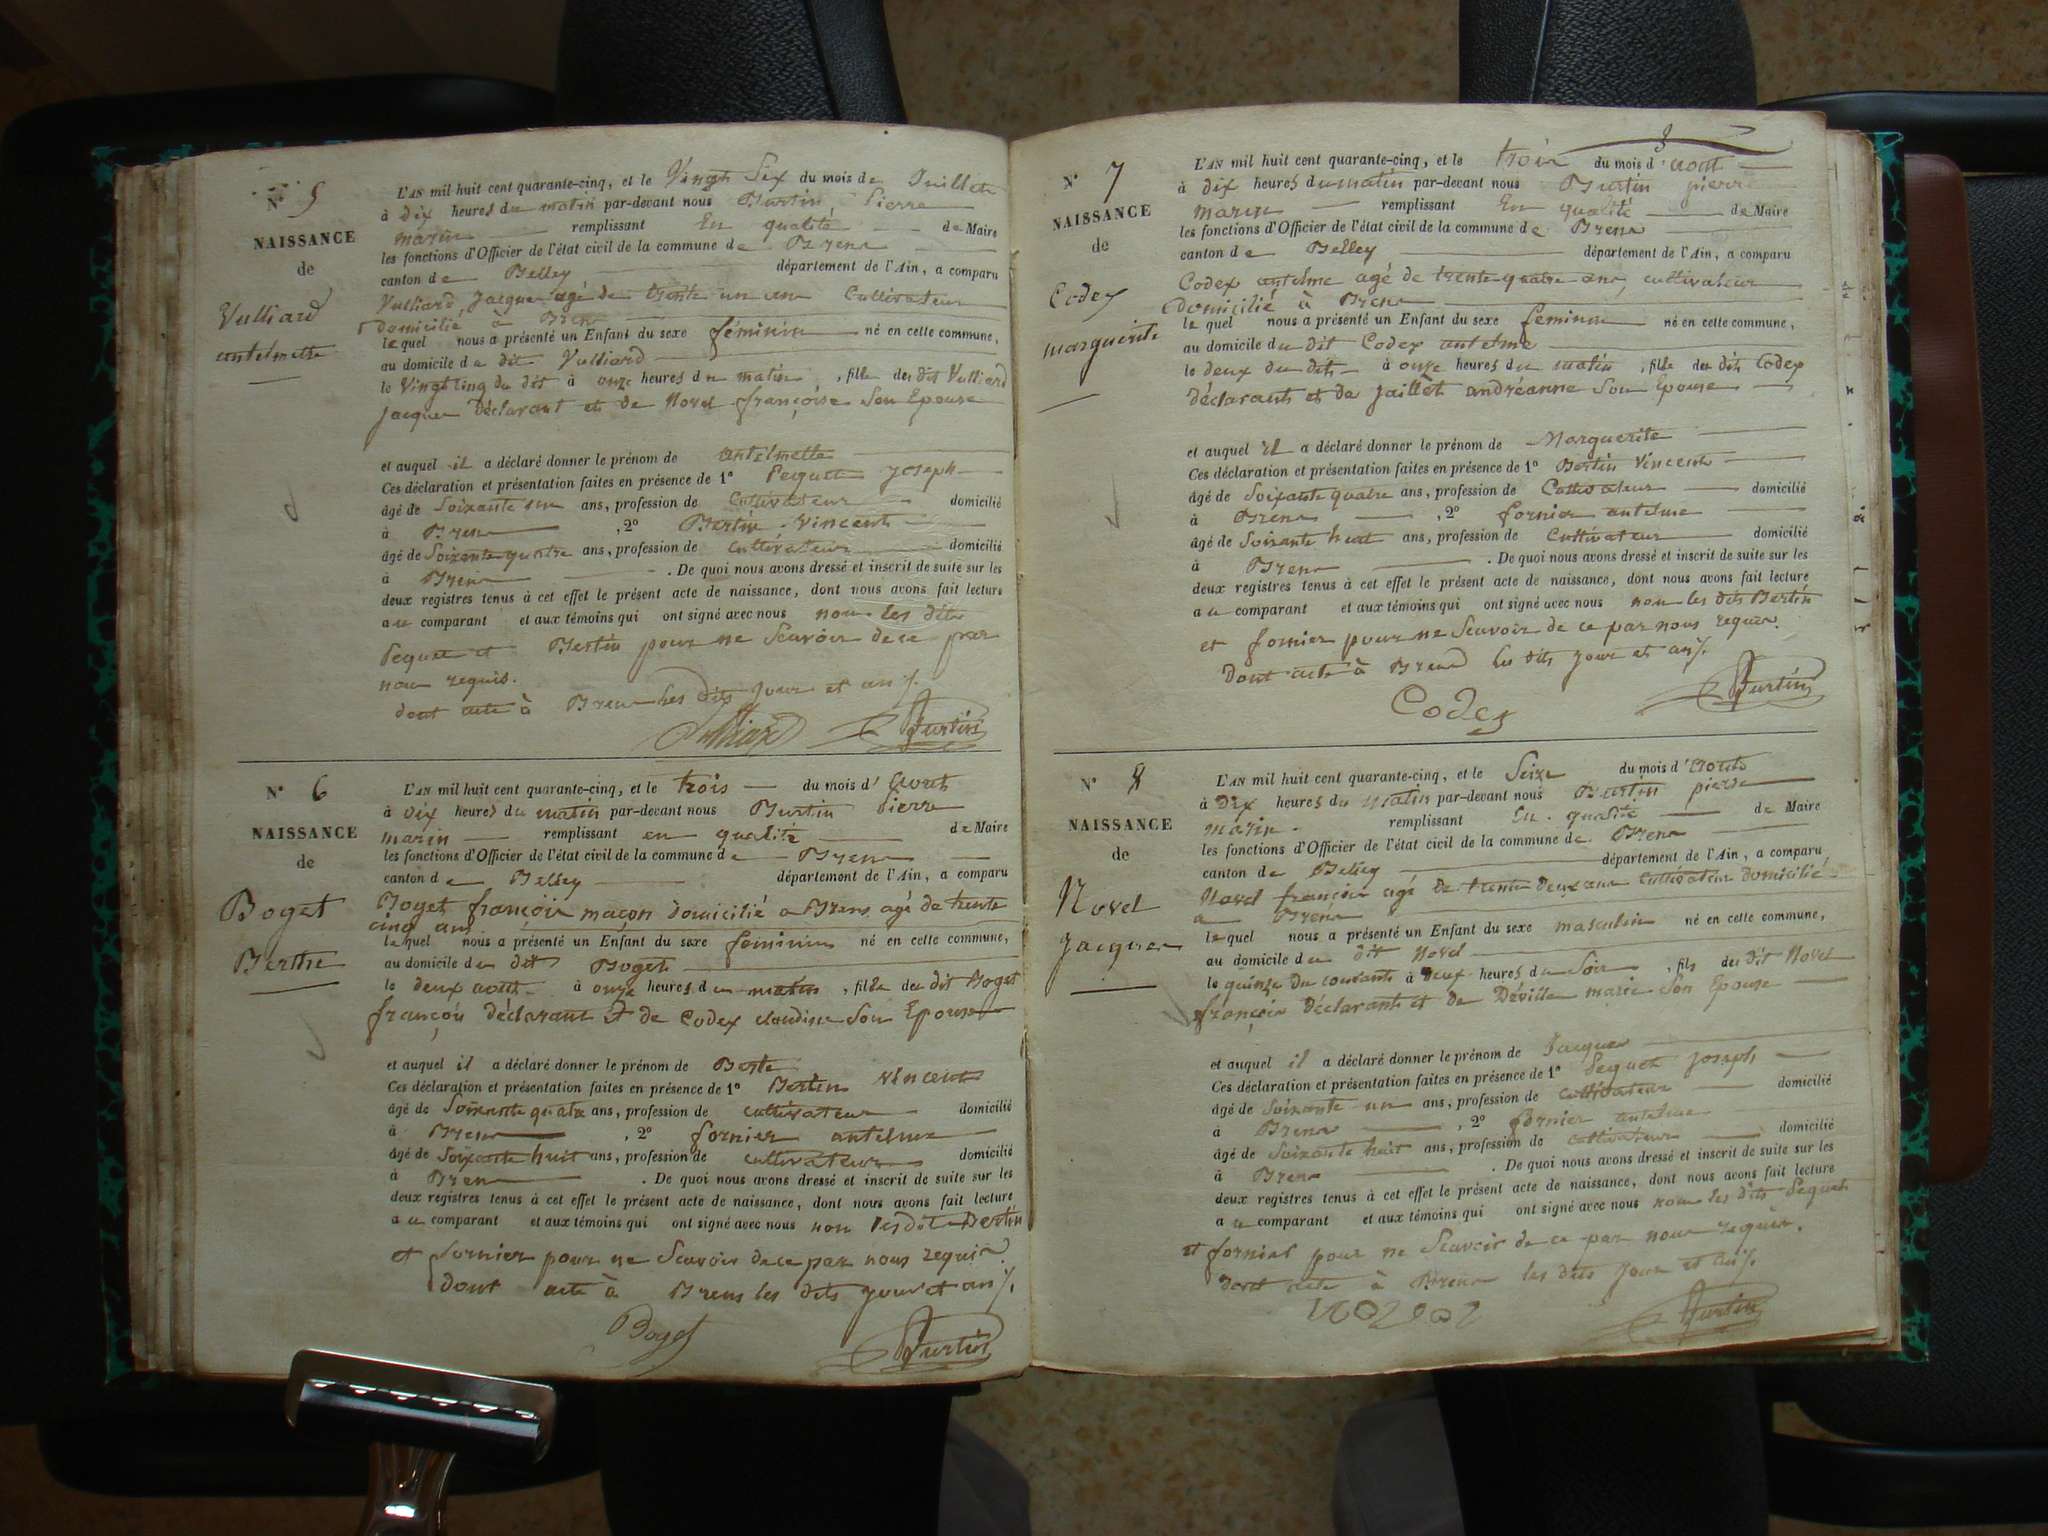 N° 5
NAISSANCE
de
Vulliard
antelmette
L'AN mil huit cent quarante-cinq, et le Vingt Six du mois de Juillet
à dix heures du matin par-devant nous Burtin, Pierre
marin remplissant En qualité de Maire
les fonctions d'Officier de l'état civil de la commune de Brens
canton de Belley département de l'Ain, a comparu
Vulliard, Jacques agé de trente un ans Cultivateur
domicilié à Brens
lequel nous a présenté un Enfant du sexe féminin né en cette commune,
au domicile du dit Vulliard
le Vingt Cinq du dit à onze heures du matin, fille des dit Vulliard
Jacques Déclarant et de Novel françoise Son Epouse
et auquel il a déclaré donner le prénom de antelmette
Ces déclaration et présentation faites en présence de 1° Pequet Joseph
âgé de Soixante un ans, profession de Cultivateur domicilié
à Brens, 2° Bertin Vincent
âgé de Soixante quatre ans, profession de cultivateur domicilié
à Brens. De quoi nous avons dressé et inscrit de suite sur les
deux registres tenus à cet effet le présent acte de naissance, dont nous avons fait lecture
au comparant et aux témoins qui ont signé avec nous non les dits
Pequet et Bertin pour ne Scavoir de ce par
nous requis.
dont acte à Brens les dits Jour et an
Vulliard Burtin
N° 6
NAISSANCE
de
Boget
Berthe
L'AN mil huit cent quarante-cinq, et le trois du mois d'Aout
à dix heures du matin par-devant nous Burtin Pierre
marin remplissant en qualité de Maire
les fonctions d'Officier de l'état civil de la commune de Brens
canton de Belley département de l'Ain, a comparu
Boget françois maçon domicilié a Brens agé de trente
cinq ans
lequel nous a présenté un Enfant du sexe feminin né en cette commune,
au domicile du dit Boget
le deux aout à onze heures du matin, fille du dit Boget
françois déclarant et de Codex claudine Son Epouse
et auquel il a déclaré donner le prénom de Berte
Ces déclaration et présentation faites en présence de 1° Bertin Vincent
âgé de Soixante quatre ans, profession de cultivateur domicilié
à Brens, 2° fornier antelme
âgé de Soixante huit ans, profession de cultivateur domicilié
à Brens. De quoi nous avons dressé et inscrit de suite sur les
deux registres tenus à cet effet le présent acte de naissance, dont nous avons fait lecture
au comparant et aux témoins qui ont signé avec nous non les dits Bertin
et fornier pour ne Scavoir de ce par nous requis.
dont acte à Brens les dits jour et an
Boget Burtin
8
N° 7
NAISSANCE
de
Codex
marguerite
L'AN mil huit cent quarante-cinq, et le trois du mois d'aout
à dix heures du matin par-devant nous Burtin pierre
marin remplissant En qualité de Maire
les fonctions d'Officier de l'état civil de la commune de Brens
canton de Belley département de l'Ain, a comparu
Codex antelme agé de trente quatre ans, cultivateur
domicilié à Brens
lequel nous a présenté un Enfant du sexe feminin né en cette commune,
au domicile du dit Codex antelme
le deux du dit à onze heures du matin, fille des dits Codex
déclarant et de Jaillet andréanne Son Epouse
et auquel il a déclaré donner le prénom de Marguerite
Ces déclaration et présentation faites en présence de 1° Bertin Vincent
âgé de Soixante quatre ans, profession de Cultivateur domicilié
à Brens, 2° fornier antelme
âgé de Soixante huit ans, profession de Cultivateur domicilié
à Brens. De quoi nous avons dressé et inscrit de suite sur les
deux registres tenus à cet effet le présent acte de naissance, dont nous avons fait lecture
au comparant et aux témoins qui ont signé avec nous non les dits Bertin
et fornier pour ne Scavoir de ce par nous requis.
dont acte à Brens les dits jour et an
Codex Burtin
N° 8
NAISSANCE
de
Novel
Jacques
L'AN mil huit cent quarante-cinq, et le Seize du mois d'Aout
à dix heures du matin par-devant nous Burtin pierre
marin. remplissant En qualité de Maire
les fonctions d'Officier de l'état civil de la commune de Brens
canton de Belley département de l'Ain, a comparu
Novel françois agé de trente deux ans cultivateur domicilié
a Brens
lequel nous a présenté un Enfant du sexe masculin né en cette commune,
au domicile du dit Novel
le quinze du courant à deux heures du Soir, fils des dit Novel
françois Déclarant et de Déville marie Son Epouse
et auquel il a déclaré donner le prénom de Jacques
Ces déclaration et présentation faites en présence de 1° Pequet Joseph
âgé de Soixante un ans, profession de cultivateur domicilié
à Brens, 2° fornier antelme
âgé de Soixante huit ans, profession de cultivateur domicilié
à Brens. De quoi nous avons dressé et inscrit de suite sur les
deux registres tenus à cet effet le présent acte de naissance, dont nous avons fait lecture
au comparant et aux témoins qui ont signé avec nous non les dits Pequet
et fornier pour ne Scavoir de ce par nous requis.
dont acte à Brens les dits jour et an
Burtin